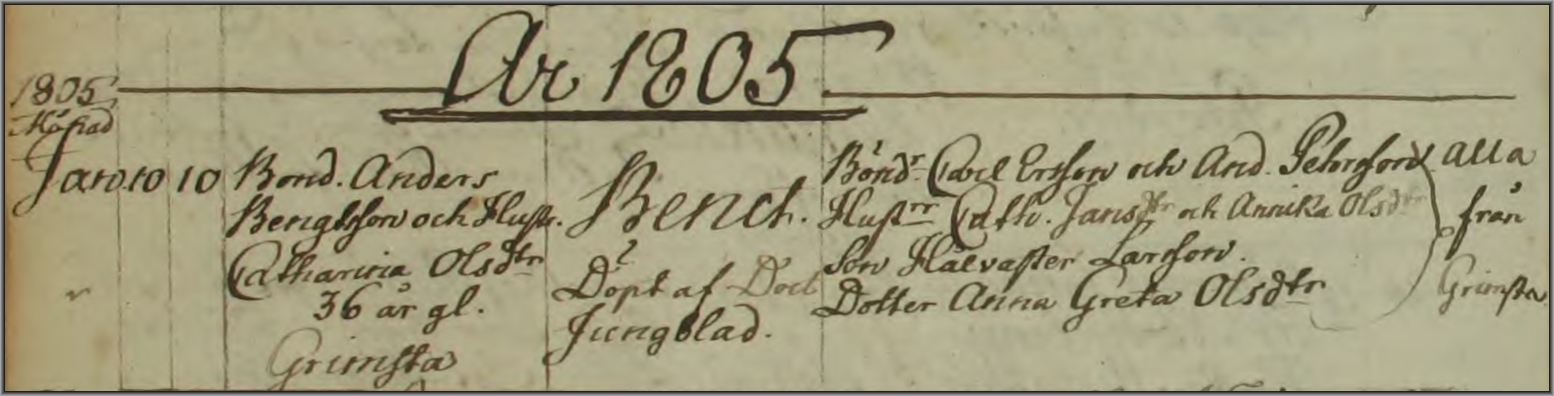 År 1805
1805
Månad
Jan. 10 10
Bond. Anders
Bengtsson och Hustr.
Catharina Olsdtr
36 år gl.
Grimsta
Bencht.
Döpt af Doct
Ljungblad.
Böndr Carl Ersson och And. Pehrsson
Hustrr Cath. Jansdtr och Annika Olsdtr
Son Larsson.
Dotter Anna Greta Olsdtr
Alla
från
Grimsta